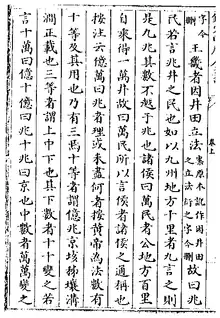 字今刪 王畿者因井田立法 案原本訛作因井田之立法衍之字今刪 故曰兆
民若言兆井之民也如以九州地方千里者九言之則
是九兆其數不越于兆也諸侯曰萬民者公地方百里
自乘得一萬井故曰萬民所以言侯者諸侯之通稱也
按注云億萬曰兆者理或未盡何者按黄帝為法數有
十等及其用也乃有三焉十等者謂億兆京垓秭壤溝
澗正載也三等者謂上中下也其下數者十十變之若
言十萬曰億十億曰兆十兆曰京也中數者萬萬變之
卷上